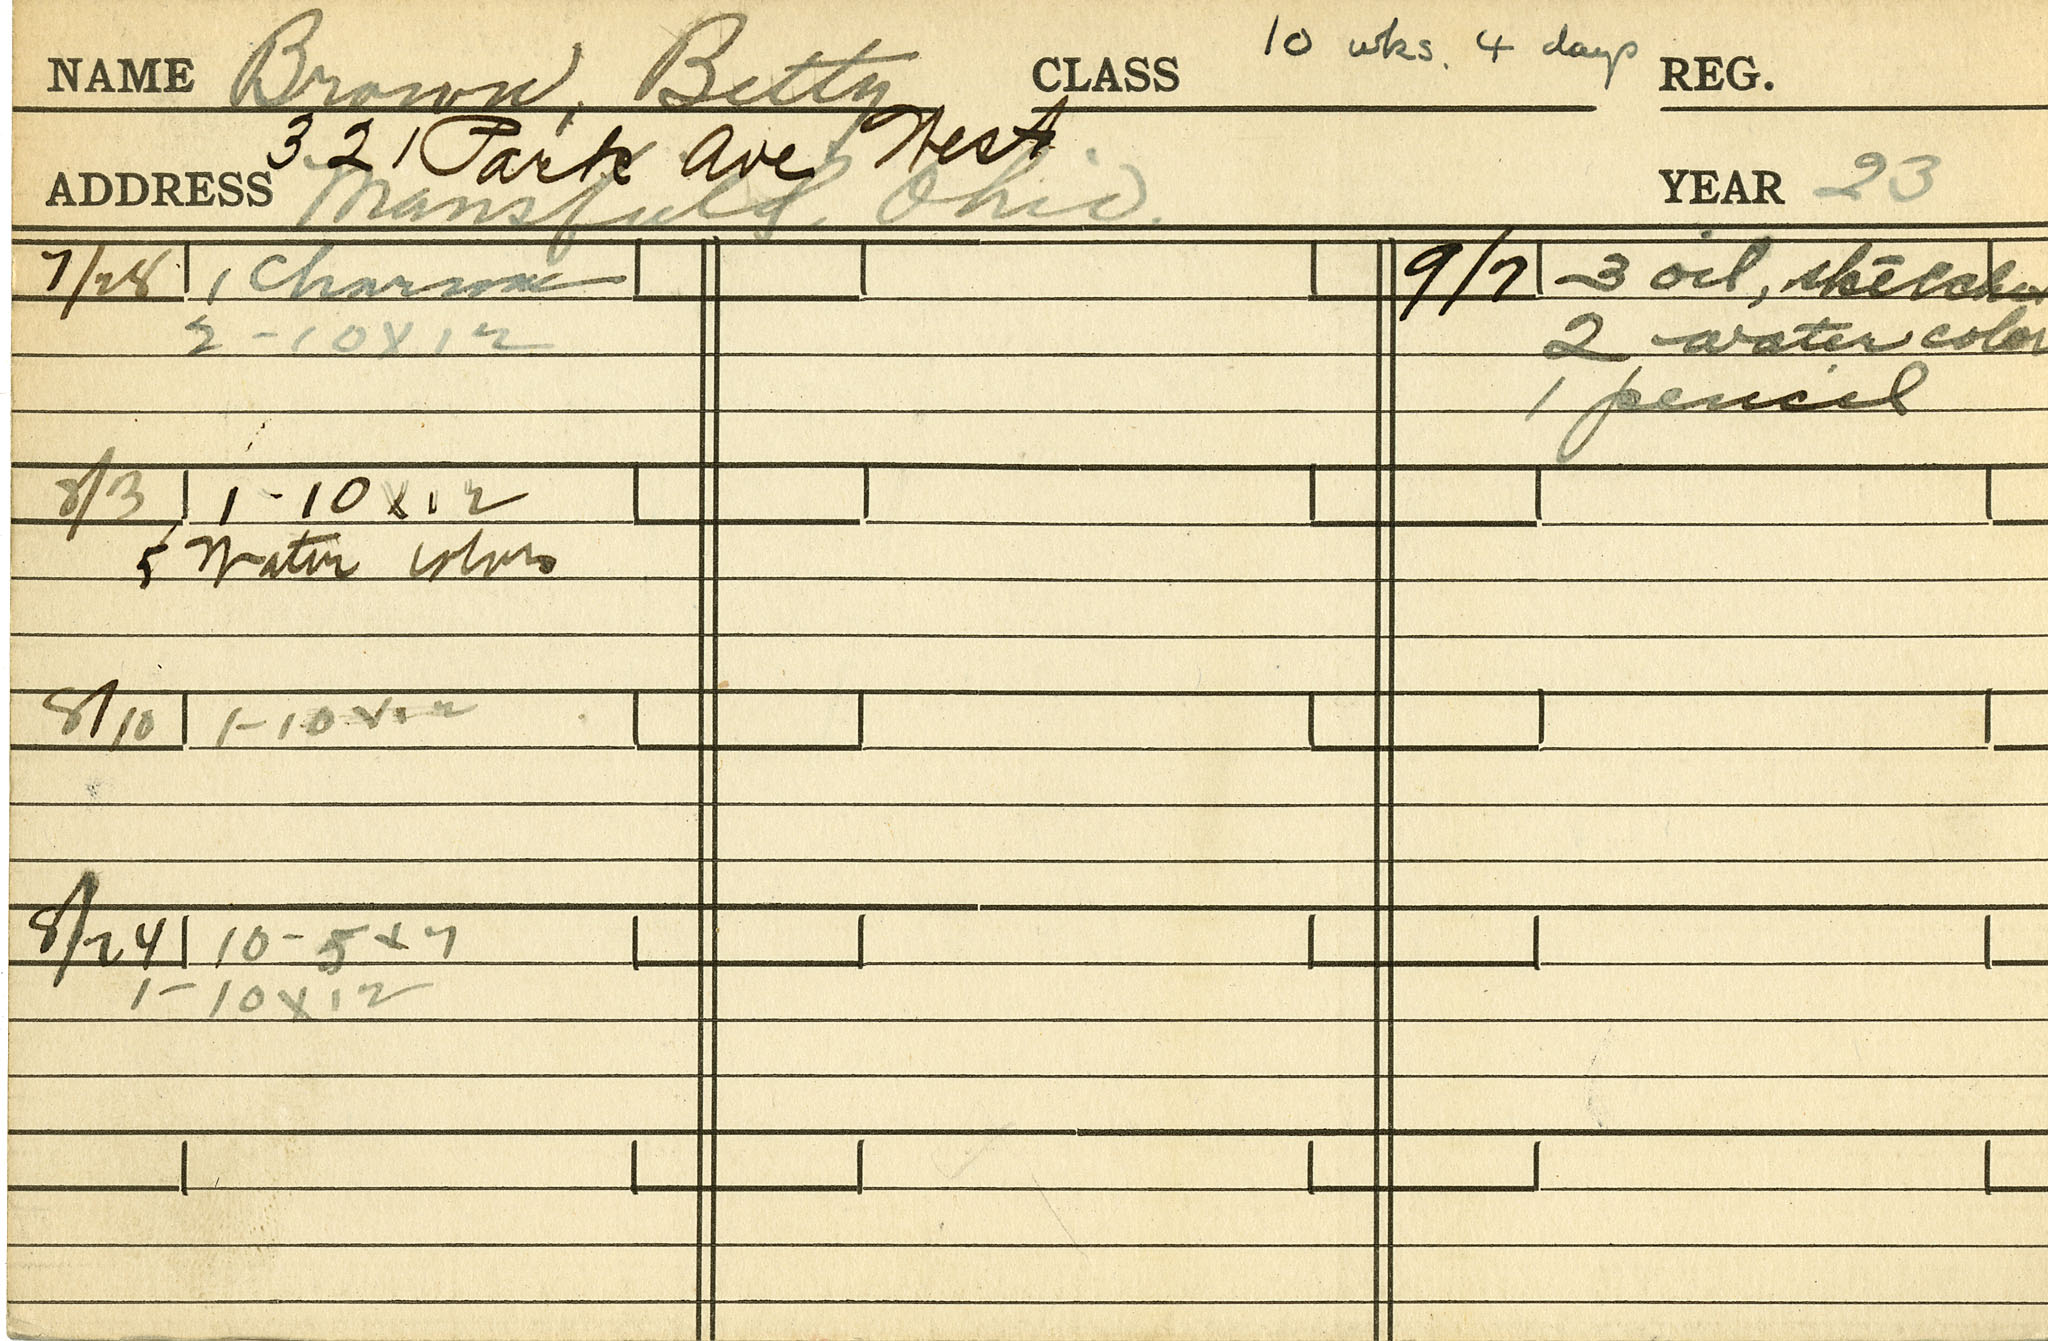 NAME Brown, Betty CLASS 10 wks. 4 days REG.
321 Park Ave West
ADDRESS Mansfield, Ohio. YEAR 23
7/28 1 9/7 3 oil, sketches
2-10x12 2 water color
1 pencil
8/3 1-10x12
5 Water colors
8/10 1-10x12
8/24 10-5x7
1-10x12